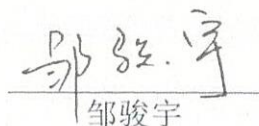 邹骏宇
邹骏宇